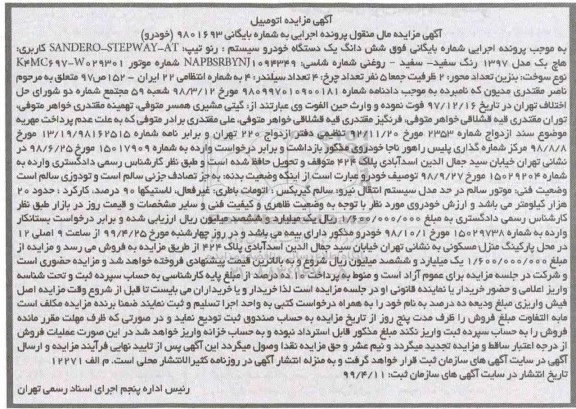 آگهی مزایده اتومبیل
آگهی مزایده مال منقول پرونده اجرایی به شماره بایگانی ۹۸۰۱۶۹۳ (خودرو)
به موجب پرونده اجرایی شماره بایگانی فوق شش دانگ یک دستگاه خودرو سیستم : رنو تیپ: SANDERO-STEPWAY-AT کاربری:
هاچ بک مدل ۱۳۹۷ رنگ سفید- سفید - روغنی شماره شاسی: NAPBSRBYNJ۱۰۹۴۳۴۹ شماره موتور K۴MC۶۹۷-W۰۲۹۳۰۱
نوع سوخت: بنزین تعداد محور: ۲ ظرفیت جمعا۵ نفر تعداد چرخ: ۴ تعداد سیلندر: ۴ به شماره انتظامی ۲۲ ایران - ۱۵۲ص۹۷ متعلق به مرحوم
ناصر مقتدری مدیون که نامبرده به موجب دادنامه شماره ۹۸۰۹۹۷۰۱۰۹۰۰۱۸۱ مورخ ۹۸/۳/۱۲ شعبه ۵۹ مجتمع شماره دو شورای حل
اختلاف تهران در تاریخ ۹۷/۱۲/۱۶ فوت نموده و وارث حین الفوت وی عبارتند از: گیتی مشیری همسر متوفی، تهمینه مقتدری خواهر متوفی،
توران مقتدری قیه قشلاقی خواهر متوفی، فرنگیز مقتدری قیه قشلاقی خواهر متوفی، علی مقتدری برادر متوفی که به علت عدم پرداخت مهریه
موضوع سند ازدواج شماره ۲۳۵۳ مورخ ۹۲/۱۱/۲۰ تنظیمی دفتر ازدواج ۲۲۰ تهران و برابر نامه شماره ۱۳/۱۹/۹۸۱۶۲۵۱۵ مورخ
۹۸/۸/۸ مرکز شماره گذاری پلیس راهور ناجا خودروی مذکور بازداشت و برابر درخواست وارده به شماره ۱۵۰۱۷۹۰۹ مورخ ۹۸/۶/۲۵ در
نشانی تهران خیابان سید جمال الدین اسدآبادی پلاک ۴۲۴ متوقف و تحویل حافظ شده است و طبق نظر کارشناس رسمی دادگستری وارده به
شماره ۱۵۰۲۹۲۰۴ مورخ ۹۸/۹/۲۷ توصیف خودرو عبارت است از: اینکه وضعیت بدنه: به جز تصادف جزئی سالم است و تودوزی سالم است
وضعیت فنی: موتور سالم در حد مدل سیستم انتقال نیرو: سالم گیربکس : اتومات باطری: غیرفعال، لاستیکها ۹۰ درصد. کارکرد : حدود ۲۰
هزار کیلومتر می باشد و ارزش خودروی مورد نظر با توجه به وضعیت ظاهری و کیفیت فنی و سایر مشخصات و قیمت روز در بازار طبق نظر
کارشناس رسمی دادگستری به مبلغ ۱/۶۰۰/۰۰۰/۰۰۰ ریال یک میلیارد و ششصد میلیون ریال ارزیابی شده و برابر درخواست بستانکار
وارده به شماره ۱۵۰۲۹۷۳۸ مورخ ۹۸/۱۰/۱ خودرو مذکور دارای بیمه می باشد و در روز چهارشنبه مورخ ۹۹/۴/۲۵ از ساعت ۹ اصلی ۱۲
در محل پارکینگ منزل مسکونی به نشانی تهران خیابان سید جمال الدین اسدآبادی پلاک ۴۲۴ از طریق مزایده به فروش می رسد و مزایده از
مبلغ ۱/۶۰۰/۰۰۰/۰۰۰ یک میلیارد و ششصد میلیون ریال شروع و به بالاترین قیمت پیشنهادی فروخته خواهد شد و مزایده حضوری است
و شرکت در جلسه مزایده برای عموم آزاد است و منوط به پرداخت ده درصد از مبلغ پایه کارشناسی به حساب سپرده ثبت و تحت شناسه
واریز اعلامی و حضور خریدار یا نماینده قانونی او در جلسه مزایده است لذا خریدار و یا خریداران می بایست تا قبل از شروع وقت مزایده اصل
فیش واریزی مبلغ ودیعه ده درصد به نام خود را به همراه درخواست کتبی به واحد اجرا تسلیم و ثبت نمایند ضمنا برنده مزایده مکلف است
مابه التفاوت مبلغ فروش را ظرف مدت پنج روز از تاریخ مزایده به حساب صندوق ثبت تودیع نماید و در صورتی که ظرف مهلت مقرر مانده
فروش را به حساب سپرده ثبت واریز نکند مبلغ مذکور قابل استرداد نبوده و به حساب خزانه واریز خواهد شد در این صورت عملیات فروش
از درجه اعتبار ساقط و مزایده تجدید میگردد و نیم عشر و حق مزایده نقدا وصول میگردد این آگهی پس از تایید نهایی فرآیند مزایده و ارسال
آگهی در سایت آگهی های سازمان ثبت قرار خواهد گرفت و به منزله انتشار آگهی در روزنامه کثیرالانتشار محلی است. م الف ۱۲۲۷۱
تاریخ انتشار در سایت آگهی های سازمان ثبت: ۹۹/۴/۱۱
رئیس اداره پنجم اجرای اسناد رسمی تهران